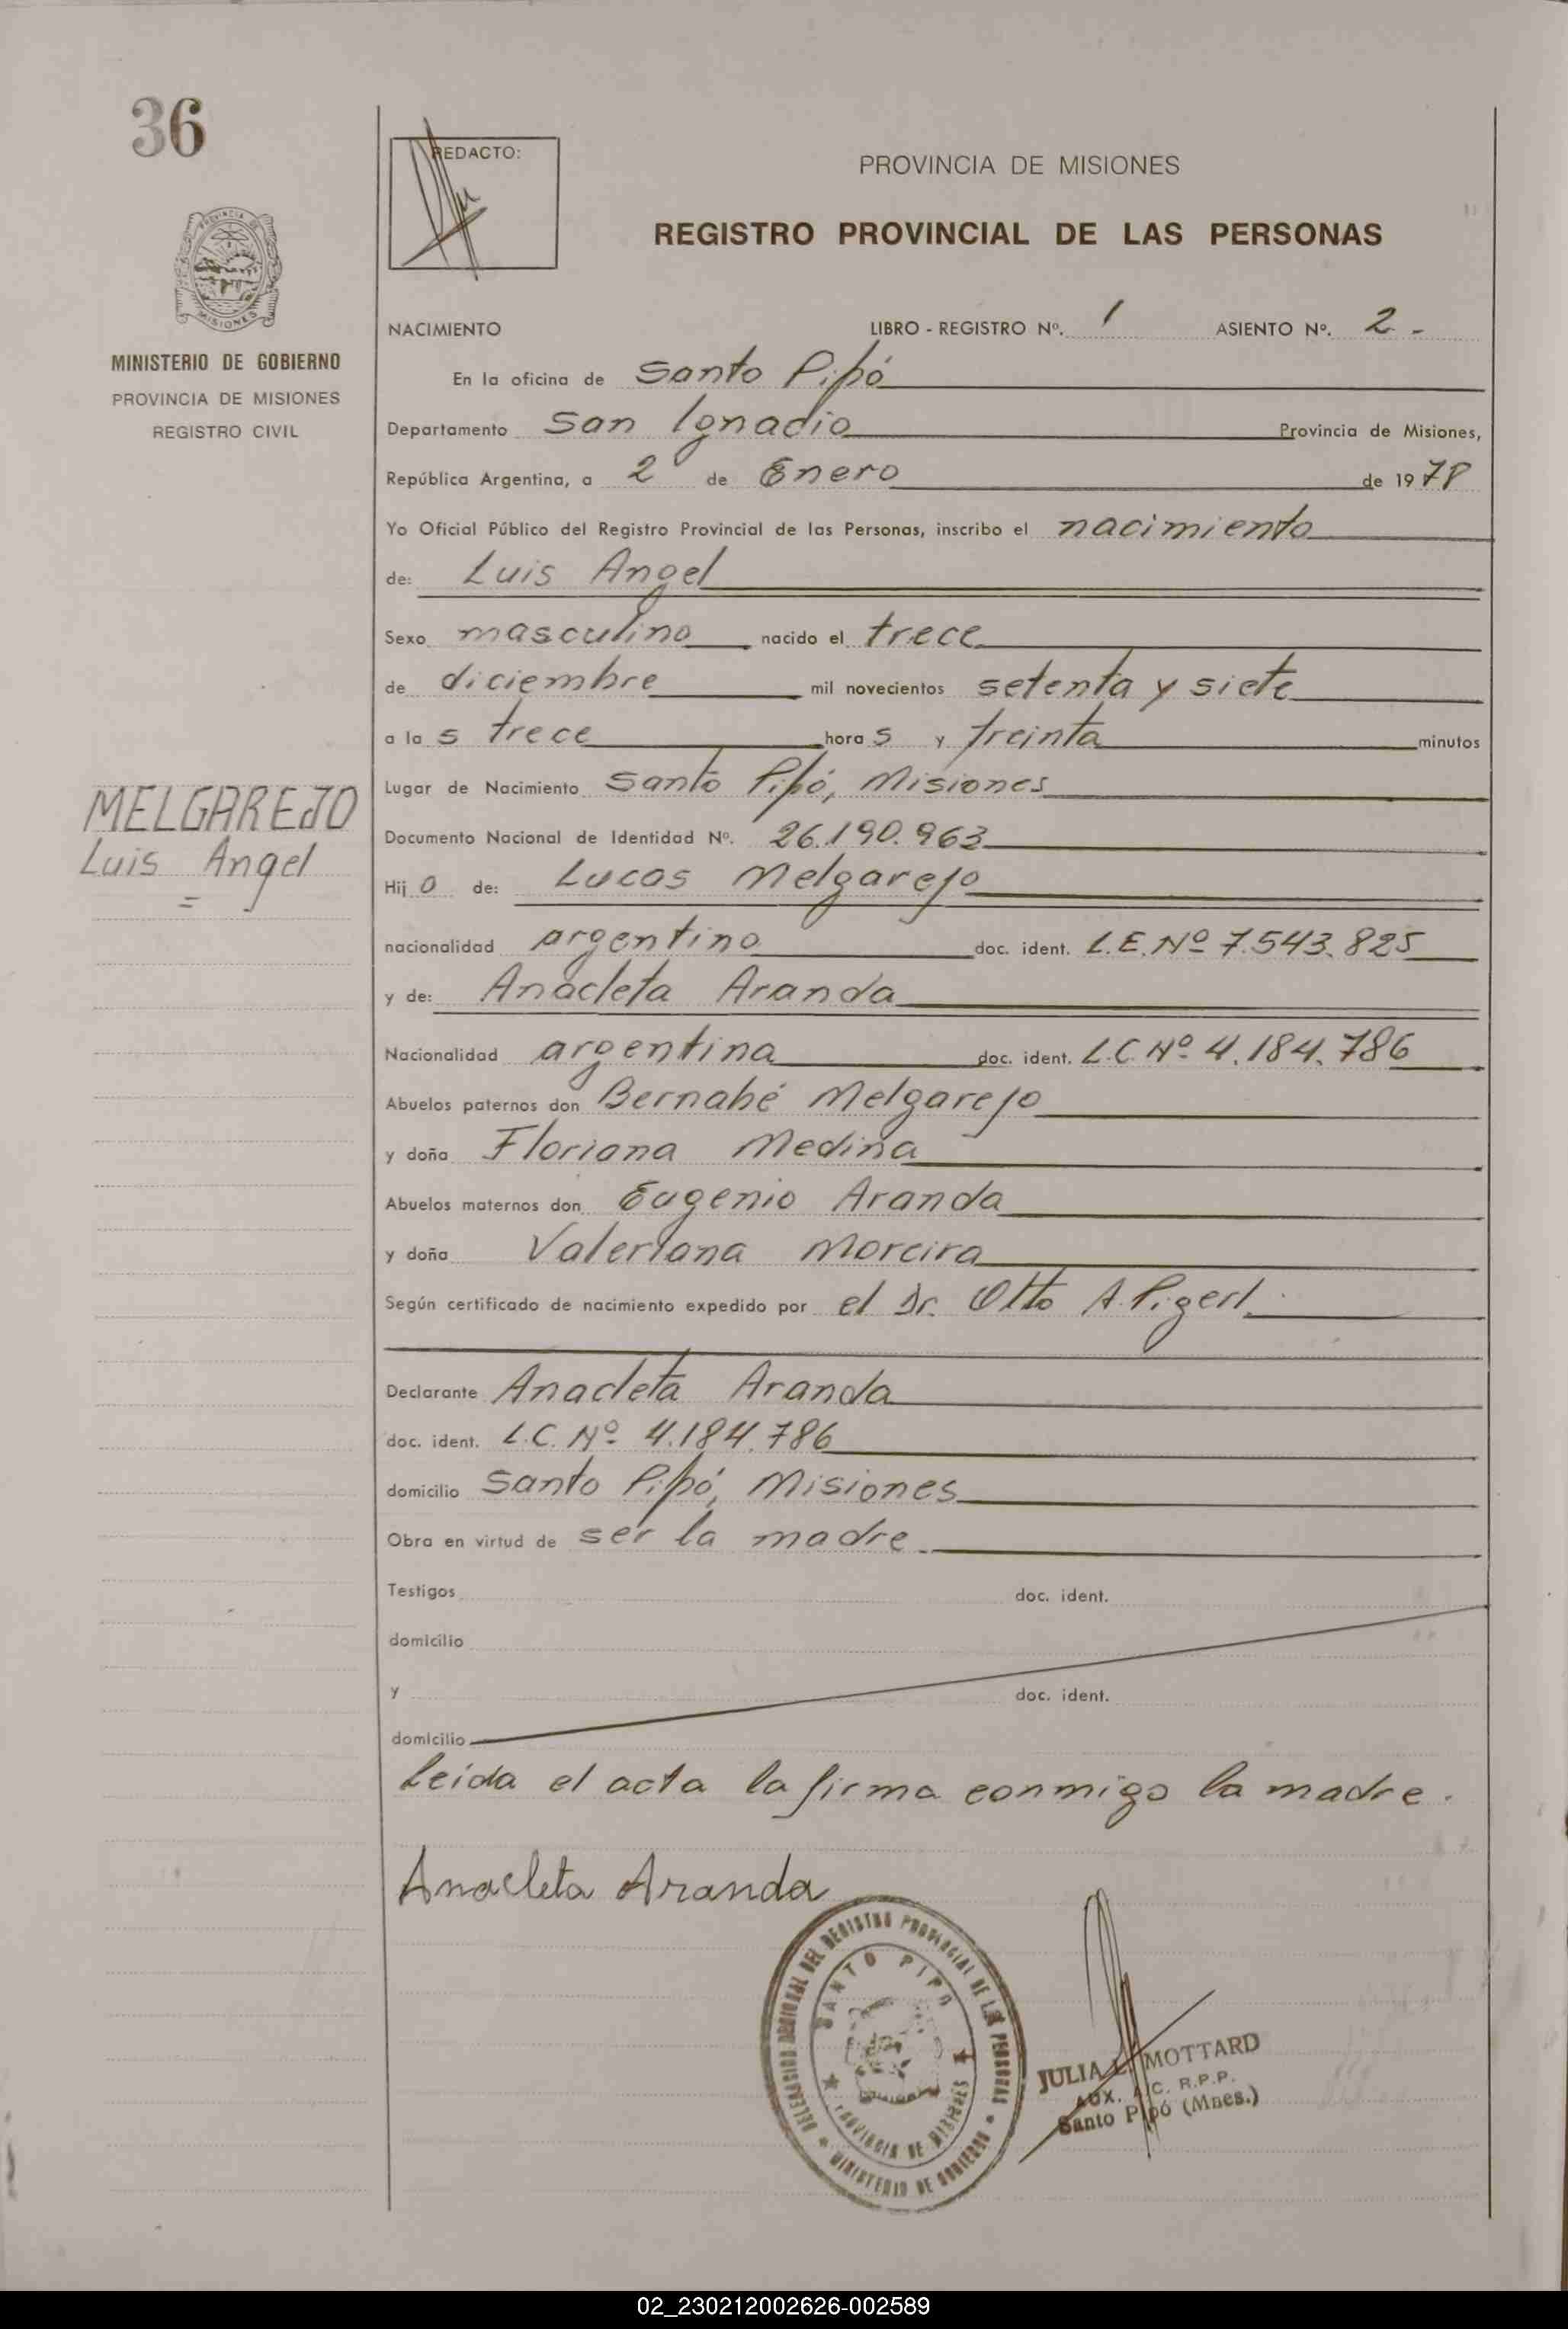 36
REDACTO:
PROVINCIA DE MISIONES
REGISTRO PROVINCIAL DE LAS PERSONAS
PROVINCIA DE
MISIONES
MINISTERIO DE GOBIERNO
PROVINCIA DE MISIONES
REGISTRO CIVIL
NACIMIENTO LIBRO - REGISTRO Nº. 1 ASIENTO Nº. 2 -
En la oficina de Santo Pipó
Departamento San Ignacio Provincia de Misiones,
República Argentina, a 2 de Enero de 1978
Yo Oficial Público del Registro Provincial de las Personas, inscribo el nacimiento
de: Luis Angel
Sexo masculino nacido el trece
de diciembre mil novecientos setenta y siete
a las trece horas y treinta minutos
Lugar de Nacimiento Santo Pipó, Misiones
MELGAREJO
Luis Angel
=
Documento Nacional de Identidad Nº. 26.190.963
Hijo de: Lucas Melgarejo
nacionalidad argentino doc. ident. L.E. Nº 7.543.825
y de: Anacleta Aranda
Nacionalidad argentina doc. ident. L.C. Nº 4.184.786
Abuelos paternos don Bernabé Melgarejo
y doña Floriana Medina
Abuelos maternos don Eugenio Aranda
y doña Valeriana Moreira
Según certificado de nacimiento expedido por el Dr. Otto A. Pigerl
Declarante Anacleta Aranda
doc. ident. L.C. Nº 4.184.786
domicilio Santo Pipó, Misiones
Obra en virtud de ser la madre
Testigos doc. ident.
domicilio
y doc. ident.
domicilio
Leída el acta la firma conmigo la madre.
Anacleta Aranda
DELEGACION REGIONAL DEL REGISTRO PROVINCIAL DE LAS PERSONAS
SANTO PIPO
PROVINCIA DE MISIONES
MINISTERIO DE GOBIERNO
JULIA MOTTARD
AUX. A/C. R.P.P.
Santo Pipó (Mnes.)
02_230212002626-002589